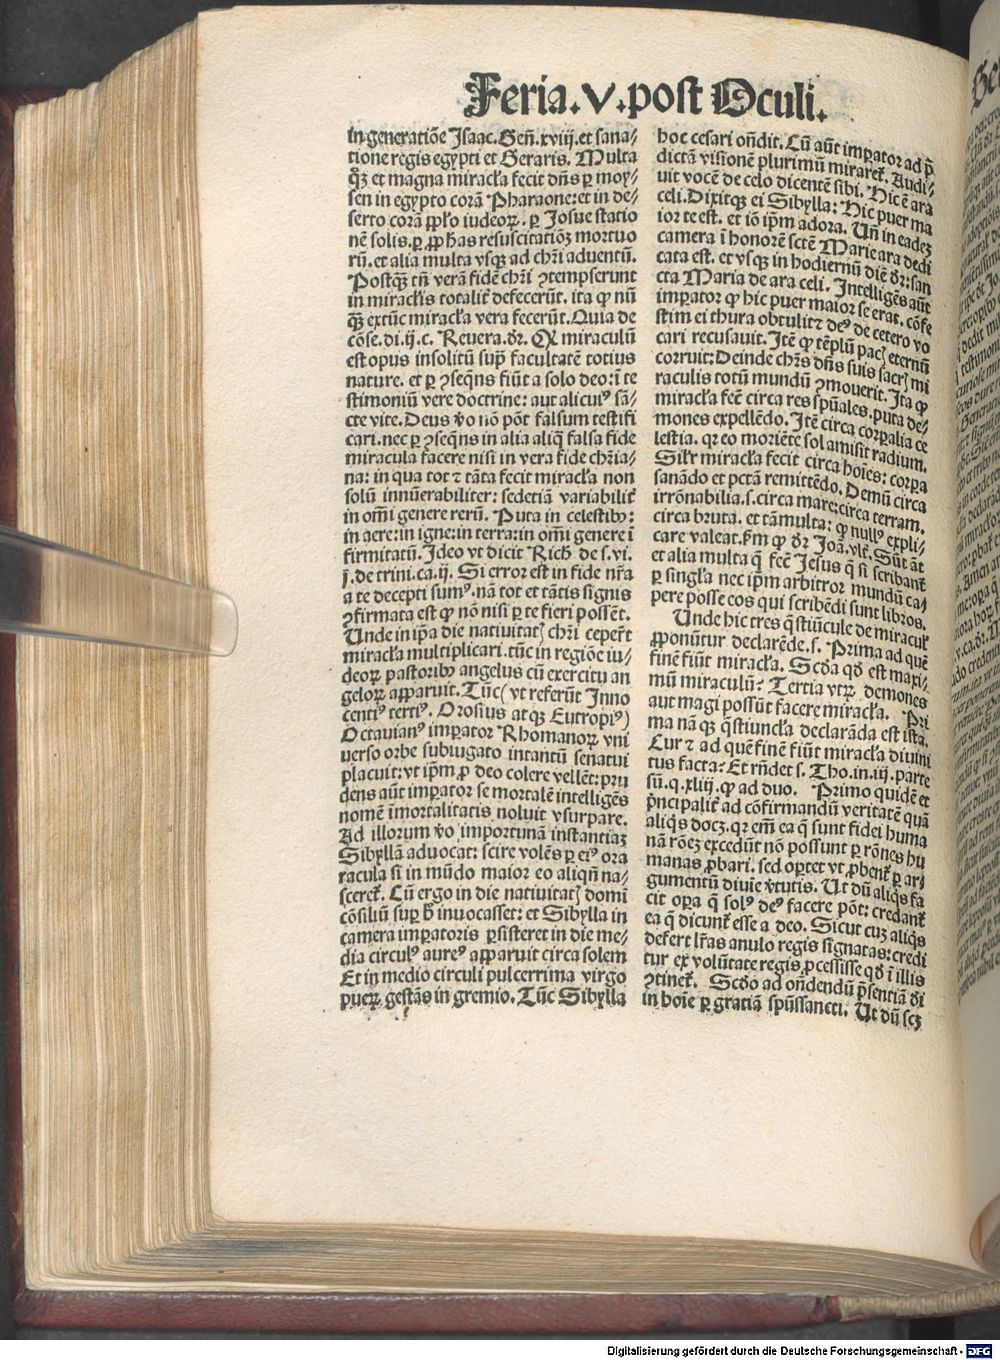 Feria.V.post Oculi.
in generatiõe Isaac. Geñ.xviij.et sana⸗
tione regis egypti et Geraris. Multa
qȝ et magna miracła fecit dñs ꝑ moy⸗
sen in egypto corã Pharaone: et in de⸗
serto corã ppło iudeoꝝ. ꝑ Josue statio
nẽ solis. ꝑ ꝓphas resuscitatiõȝ mortuo
rũ. et alia multa vsqȝ ad chri aduentũ.
Postqȝ tñ verã fidẽ chri ↄtempserunt
in miraclis totalit defecerũt. ita ꝙ nũ
qȝ extũc miracła vera fecerũt. Quia de
cõse.di.ij.c. Reuera.dr. Qꝛ miraculũ
est opus insolitũ sup facultatẽ totius
nature. et ꝑ ↄseqñs fiũt a solo deo: ĩ te
stimoniũ vere doctrine: aut alicuiꝰ sã⸗
cte vite. Deus vo nõ põt falsum testifi
cari. nec ꝑ ↄseqñs in alia aliq̃ falsa fide
miracula facere nisi in vera fide chria⸗
na: in qua tot ⁊ tãta fecit miracła non
solũ innũerabiliter: sed etiã variabilit
in omi genere rerũ. Puta in celestibꝰ:
in aere: in igne: in terra: in omi genere ĩ
firmitatũ. Ideo vt dicit Rich de s.vi.
j.de trini.ca.ij. Si error est in fide nra
a te decepti sumꝰ. nã tot et tãtis signis
ↄfirmata est ꝙ nõ nisi ꝑ te fieri possẽt.
Unde in ipa die natiuitatꝭ chri cepert
miracła multiplicari. tũc in regiõe iu⸗
deoꝝ pastoribꝰ angelus cũ exercitu an
geloꝝ apparuit. Tũc (vt referũt Inno
centiꝰ tertiꝰ. Orosius atqȝ Eutropiꝰ)
Octauianꝰ impator Rhomanoꝝ vni
uerso orbe subiugato intantũ senatui
placuit: vt ipm ꝓ deo colere vellẽt: pru
dens aũt impator se mortalẽ intelligẽs
nomẽ ĩmortalitatis noluit vsurpare.
Ad illorum vo importunã instantiaȝ
Sibyllã aduocat: scire volẽs ꝑ eiꝰ ora
racula si in mũdo maior eo aliqñ na⸗
sceret. Cũ ergo in die natiuitatꝭ domi
cõsiliũ sup h inuocasset: et Sibylla in
camera impatoris ꝑsisteret in die me⸗
dia circulꝰ aureꝰ apparuit circa solem
Et in medio circuli pulcerrima virgo
pueꝝ gestãs in gremio. Tũc Sibylla
hoc cesari oñdit. Cũ aũt impator ad p̃
dictã visionẽ plurimũ miraret. Audi⸗
uit vocẽ de celo dicentẽ sibi. Hic ẽ ara
celi. Dixitqȝ ei Sibylla: Hic puer ma
ior te est. et iõ ipm adora. Uñ in eadeȝ
camera ĩ honorẽ scte Marie ara dedi
cata est. et vsqȝ in hodiernũ diẽ dr: san
cta Maria de ara celi. Intelligẽs aũt
impator ꝙ hic puer maior se erat. cõfe
stim ei thura obtulit ⁊ deꝰ de cetero vo
cari recusauit. Itẽ ꝙ tẽplũ pacꝭ eternũ
corruit: Deinde chrs dñs suis sacrꝭ mi
raculis totũ mundũ ↄmouerit. Ita ꝙ
miracła fec̃ circa res spũales. puta de⸗
mones expellẽdo. Itẽ circa corpalia ce
lestia. qr eo moriẽte sol amisit radium.
Silr miracła fecit circa hoies: corpa
sanãdo et pctã remittẽdo. Demũ circa
irrõnabilia.s.circa mare: circa terram.
circa bruta. et tã multa: ꝙ nullꝰ expli⸗
care valeat. Fm ꝙ dr Joã.vlt. Sũt ãt
et alia multa q̃ fec̃ Jesus q̃ si scribant
ꝑ singła nec ipm arbitror mundũ ca⸗
pere posse eos qui scribẽdi sunt libros.
Unde hic tres q̃stiũcule de miracul
ꝓponũtur declarẽde.s. Prima ad quẽ
finẽ fiũt miracła. Scda qd est maxi⸗
mũ miraculũ? Tertia vtꝝ demones
aut magi possũt facere miracła. Pri
ma nãqȝ q̃stiuncła declarãda est ista.
Cur ⁊ ad quẽ finẽ fiũt miracła diuini
tus facta? Et rñdet s. Tho.in.iij.parte
sũ.q.xliij.ꝙ ad duo. Primo quidẽ et
pncipalit ad cõfirmandũ veritatẽ quã
aliqs docȝ. qr em ea q̃ sunt fidei huma
nã rõeȝ excedũt nõ possunt ꝑ rõnes hu
manas ꝓbari. sed oꝑtet vt ꝓbent ꝑ ar⸗
gumentũ diuie vtutis. Ut dũ aliqs fa
cit opa q̃ solꝰ deꝰ facere põt: credant
ea q̃ dicunt esse a deo. Sicut cuȝ aliqs
defert lras anulo regis signatas: credi
tur ex volũtate regis ꝓcessisse qd ĩ illis
ↄtinet. Scdo ad oñdendũ p̃sentiã di
in hoie ꝑ gratiã spũssancti. Ut dũ scȝ
Digitalisierung gefördert durch die Deutsche Forschungsgemeinschaft - DFG